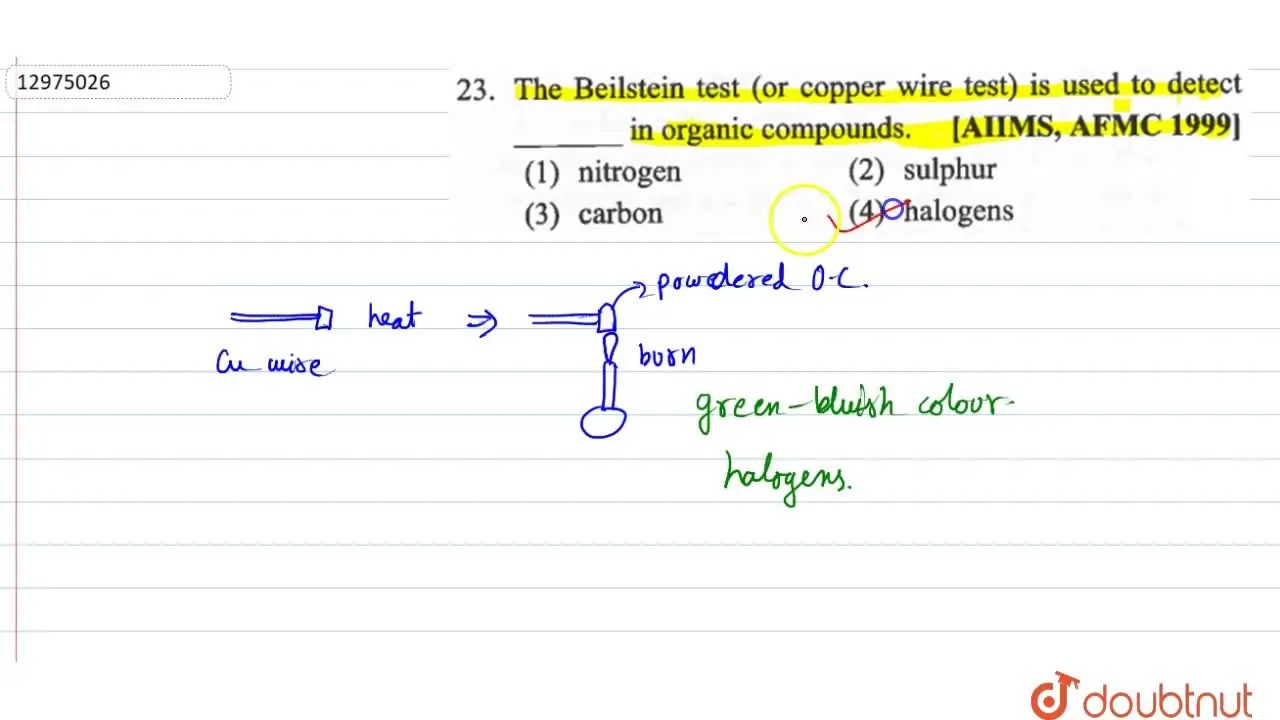 12975026
23. The Beilstein test (or copper wire test) is used to detect
_______ in organic compounds. [AIIMS, AFMC 1999]
(1) nitrogen (2) sulphur
(3) carbon (4) halogens
powdered O-C.
heat ⇒
Cu wire
burn
green-bluish colour.
halogens.
doubtnut